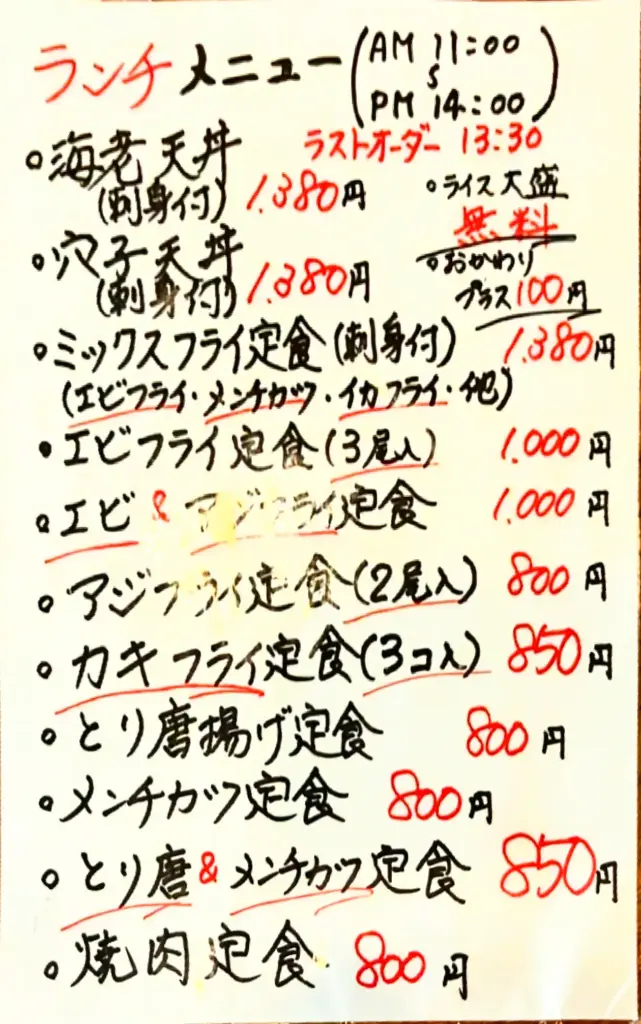 ランチメニュー(AM 11:00
〜
PM 14:00)
ラストオーダー 13:30
。海老天丼
(刺身付) 1.380円
。ライス大盛
無料
。穴子天丼
(刺身付) 1.380円
。おかわり
プラス100円
。ミックスフライ定食(刺身付) 1.380円
(エビフライ・メンチカツ・イカフライ・他)
・エビフライ定食(3尾入) 1.000円
。エビ&アジフライ定食 1.000円
。アジフライ定食(2尾入) 800円
。カキフライ定食(3コ入) 850円
。とり唐揚げ定食 800円
。メンチカツ定食 800円
。とり唐&メンチカツ定食 850円
。焼肉定食 800円